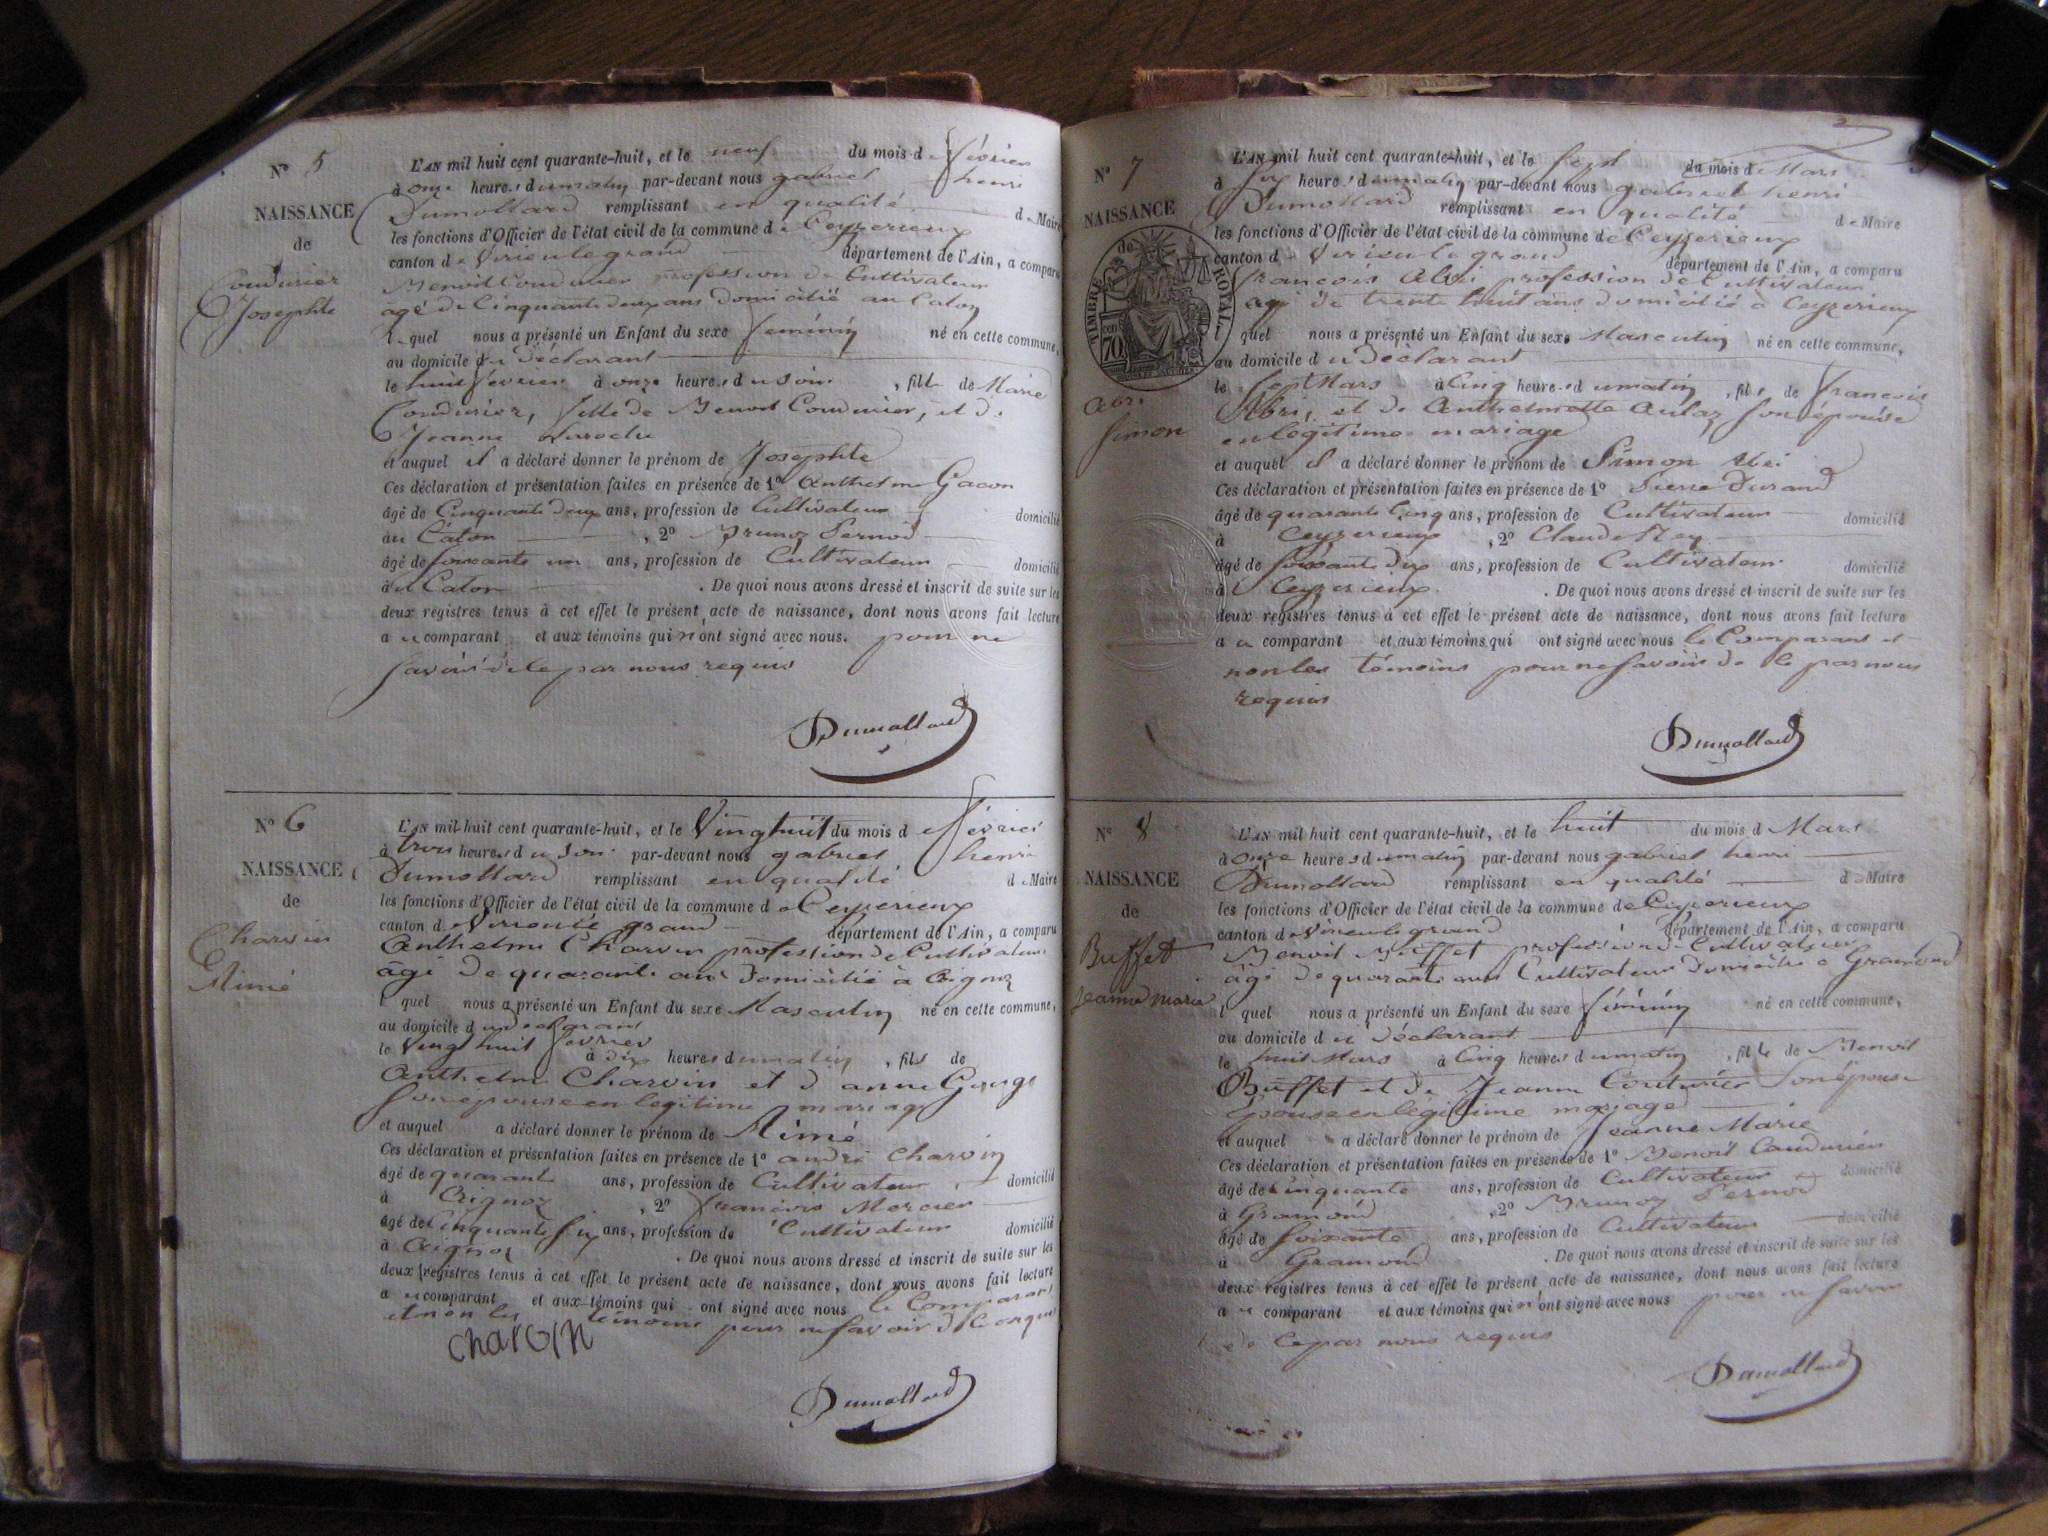 N° 5
NAISSANCE
de
Coudurier
Josephte
L'AN mil huit cent quarante-huit, et le neuf du mois de février
à onze heures du matin par-devant nous gabriel henri
Dumollard remplissant en qualité de Maire
les fonctions d'Officier de l'état civil de la commune de Ceyzerieux
canton de Virieulegrand département de l'Ain, a comparu
Benoit Coudurier profession de Cultivateur
âgé de Cinquante deux ans domicilié au Caton
lequel nous a présenté un Enfant du sexe féminin né en cette commune,
au domicile du déclarant
le huit février à onze heures du soir, fille de Marie
Coudurier, fille de Benoit Coudurier, et de
Jeanne
et auquel il a déclaré donner le prénom de Josephte
Ces déclaration et présentation faites en présence de 1° Anthelme Gacon
âgé de Cinquante deux ans, profession de Cultivateur domicilié
au Caton, 2° Brunoz Pernod
âgé de soixante un ans, profession de Cultivateur domicilié
au Caton. De quoi nous avons dressé et inscrit de suite sur les
deux registres tenus à cet effet le présent acte de naissance, dont nous avons fait lecture
au comparant et aux témoins qui n'ont signé avec nous. pour ne
savoir de le par nous requis
Dumollard
N° 6
NAISSANCE
de
Charvin
Mimé
L'AN mil huit cent quarante-huit, et le Vingthuit du mois de février
à trois heures du soir par-devant nous gabriel henri
Dumollard remplissant en qualité de Maire
les fonctions d'Officier de l'état civil de la commune de Ceyzerieux
canton de Virieulé grand département de l'Ain, a comparu
Anthelme Charvin profession de Cultivateur
âgé de quarante ans domicilié à Aignoz
lequel nous a présenté un Enfant du sexe Masculin né en cette commune,
au domicile du declarant
le Vingt huit fevrier à dix heures du matin, fils de
Anthelme Charvin et d anne
son epouse en legitime mariage
et auquel a déclaré donner le prénom de Mimé
Ces déclaration et présentation faites en présence de 1° andré Charvin
âgé de quarante ans, profession de Cultivateur domicilié
à Aignoz, 2° francois Mercier
âgé de Cinquante six ans, profession de Cultivateur domicilié
à Aignoz. De quoi nous avons dressé et inscrit de suite sur les
deux registres tenus à cet effet le présent acte de naissance, dont nous avons fait lecture
au comparant et aux témoins qui ont signé avec nous le Comparant
et non les temoins pour ne savoir de
charvin
Dumollard
N° 7
NAISSANCE
de
TIMBRE ROYAL
70
Abri
Simon
L'AN mil huit cent quarante-huit, et le sept du mois de Mars
à six heures du matin par-devant nous gabriel henri
Dumollard remplissant en qualité de Maire
les fonctions d'Officier de l'état civil de la commune de Ceyzerieux
canton de Virieu le grand département de l'Ain, a comparu
francois Abri profession de Cultivateur
agé de trente huit ans domicilié à Ceyzerieux
lequel nous a présenté un Enfant du sexe Masculin né en cette commune,
au domicile du déclarant
le sept Mars à Cinq heures du matin, fils de francois
Abri, et de Anthelmette Aulaz son épouse
en légitime mariage
et auquel il a déclaré donner le prénom de Simon Abri
Ces déclaration et présentation faites en présence de 1° Pierre Durand
âgé de quarante Cinq ans, profession de Cultivateur domicilié
à Ceyzerieux, 2° Claude Rey
âgé de soixante dix ans, profession de Cultivateur domicilié
à Ceyzerieux. De quoi nous avons dressé et inscrit de suite sur les
deux registres tenus à cet effet le présent acte de naissance, dont nous avons fait lecture
au comparant et aux témoins qui ont signé avec nous le Comparant et
non les témoins pour ne savoir de le par nous
requis
Dumollard
N° 8
NAISSANCE
de
Buffet
jeanne marie
L'AN mil huit cent quarante-huit, et le huit du mois d Mars
à onze heures du matin par-devant nous gabriel henri
Dumollard remplissant en qualité de Maire
les fonctions d'Officier de l'état civil de la commune de Ceyzerieux
canton de Virieulegrand département de l'Ain, a comparu
Benoit Buffet profession de Cultivateur
âgé de quarante ans Cultivateur domicilié a Gramond
lequel nous a présenté un Enfant du sexe féminin né en cette commune,
au domicile du déclarant
le huit Mars à Cinq heures du matin, fille de Benoit
Buffet et de Jeanne Couturier son épouse
épouse en légitime mariage
et auquel a déclaré donner le prénom de Jeanne Marie
Ces déclaration et présentation faites en présence de 1° Benoit Coudurier
âgé de Cinquante ans, profession de Cultivateur domicilié
à Gramond, 2° Brunoz Pernod
âgé de soixante ans, profession de Cultivateur domicilié
à Gramond. De quoi nous avons dressé et inscrit de suite sur les
deux registres tenus à cet effet le présent acte de naissance, dont nous avons fait lecture
au comparant et aux témoins qui n'ont signé avec nous pour ne savoir
de le par nous requis
Dumollard